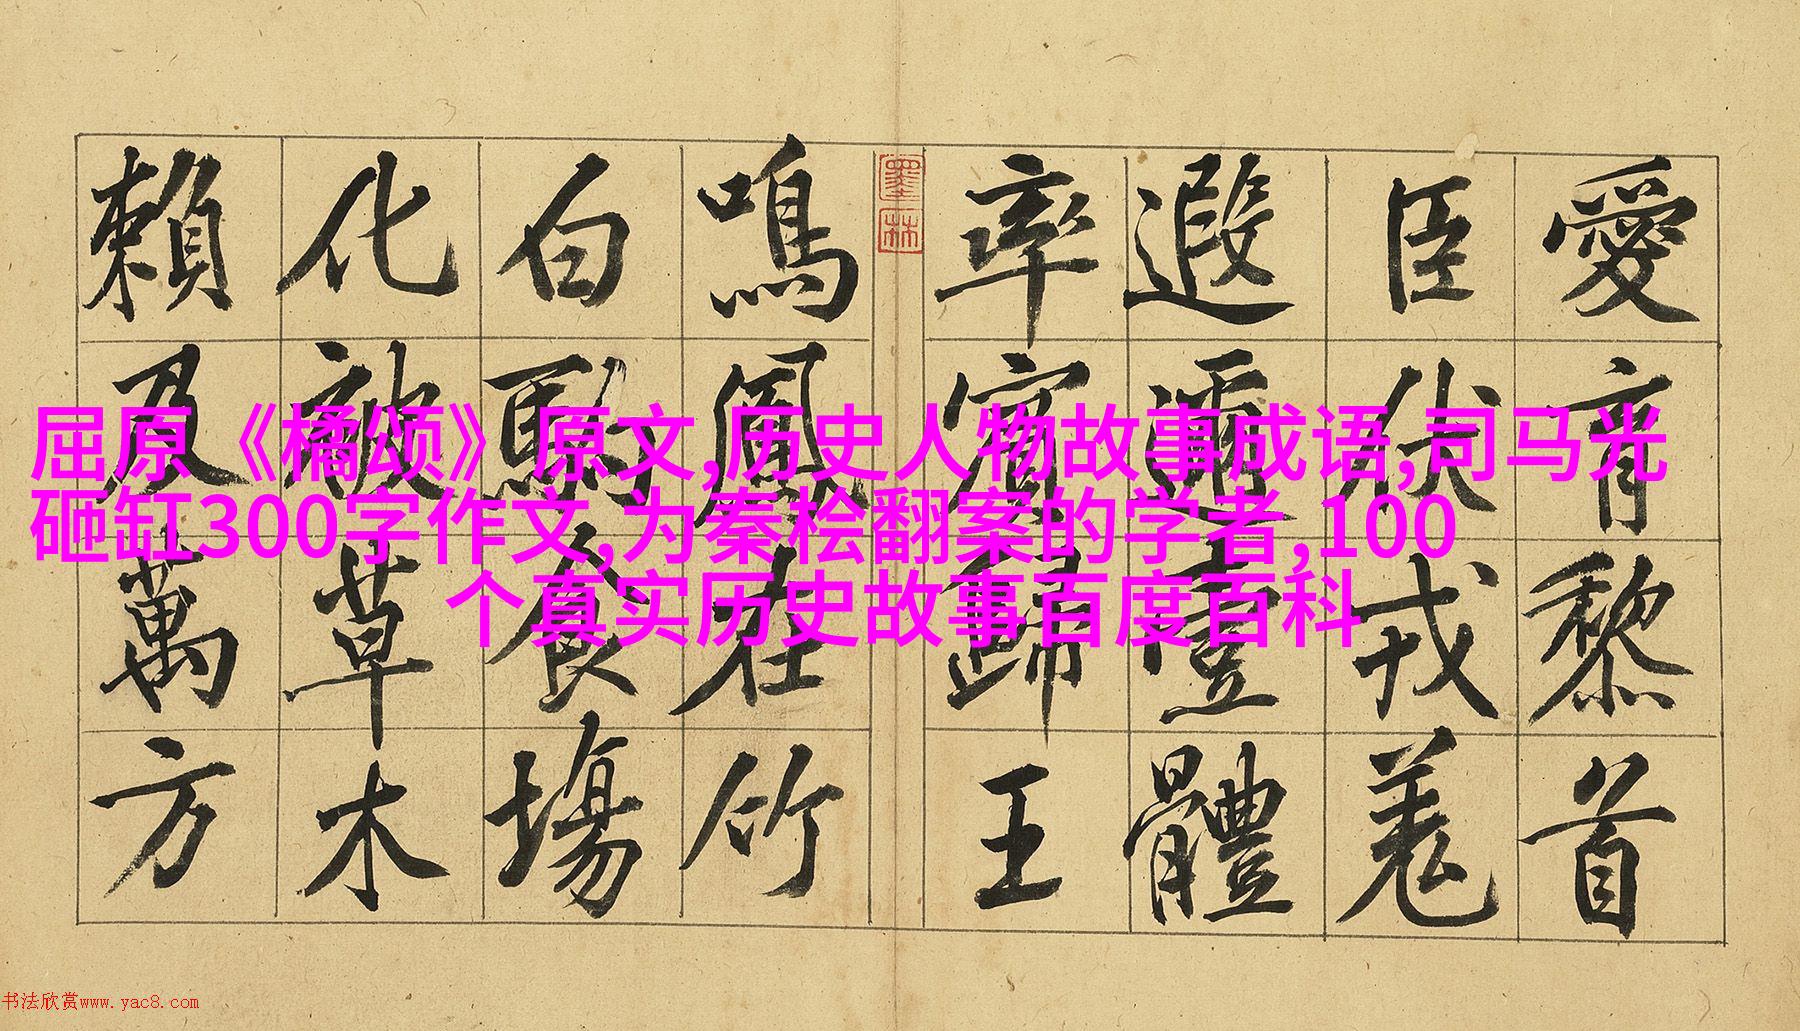 愛育黎首
臣伏戎羌
遐邇壹體
率賓歸王
墨林
鳴鳳在竹
白駒食場
化被草木
賴及萬方
屈原《橘颂》原文,历史人物故事成语,司马光
砸缸300字作文,为秦桧翻案的学者,100
个真实历史故事百度百科
书法欣赏www.yac8.com